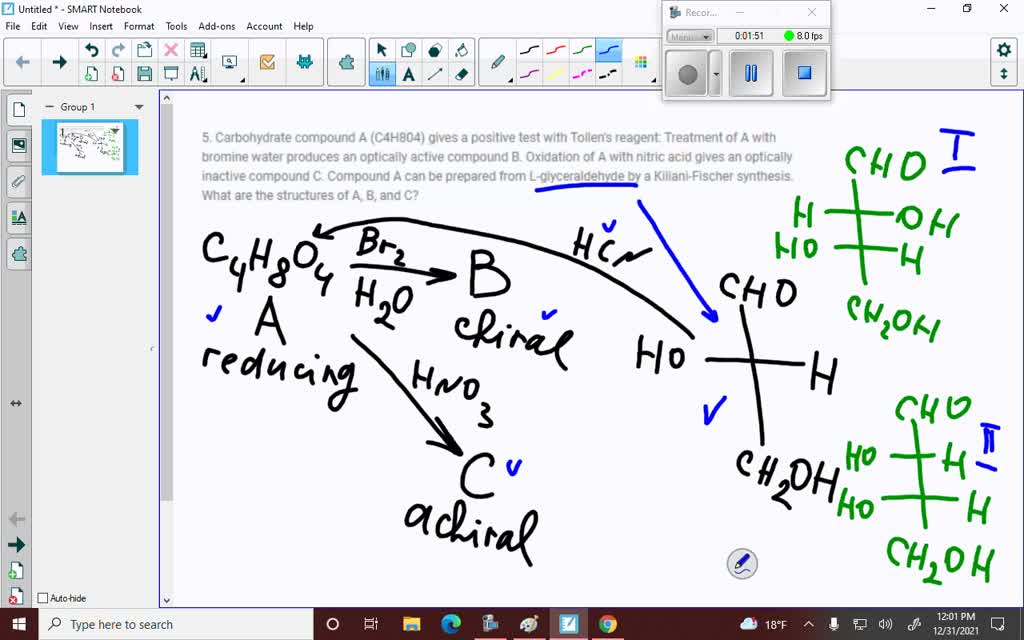 Untitled * - SMART Notebook
File Edit View Insert Format Tools Add-ons Account Help
Recor...
Menu
0:01:51
8.0 fps
Group 1
1
5. Carbohydrate compound A (C4H804) gives a positive test with Tollen's reagent: Treatment of A with
bromine water produces an optically active compound B. Oxidation of A with nitric acid gives an optically
inactive compound C. Compound A can be prepared from L-glyceraldehyde by a Kiliani-Fischer synthesis.
What are the structures of A, B, and C?
C4H8O4
Br2
H2O
B
chiral
A
reducing
HNO3
C
achiral
HCN
CHO
HO
H
CH2OH
I
CHO
H
OH
HO
H
CH2OH
II
CHO
HO
H
HO
H
CH2OH
Auto-hide
Type here to search
18°F
12:01 PM
12/31/2021